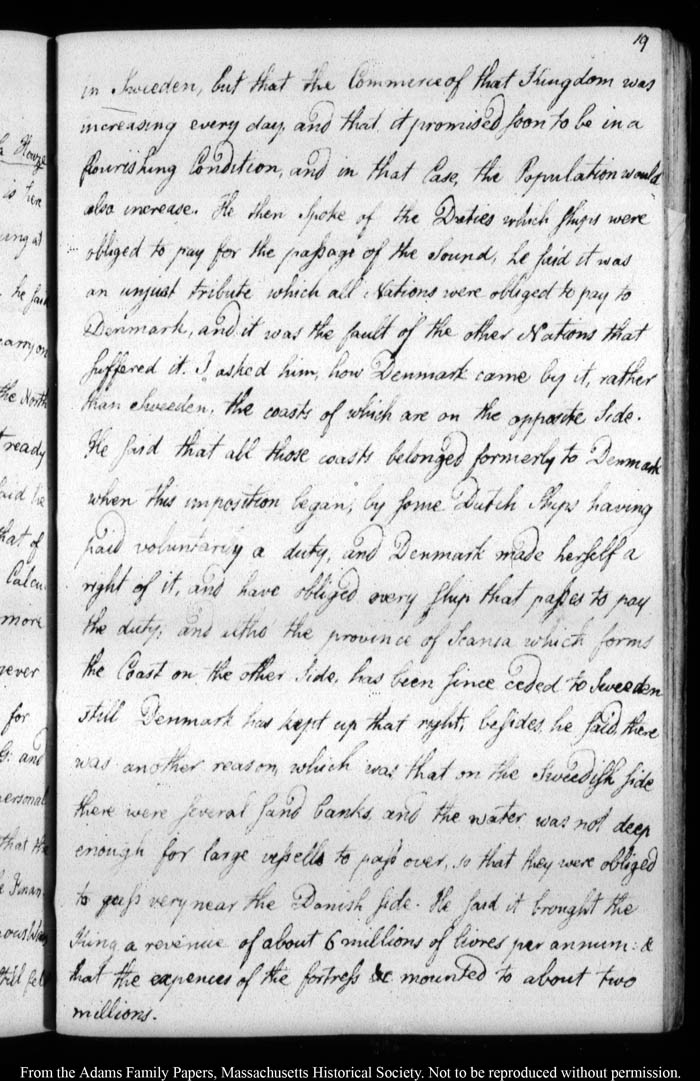 19
in Sweeden, but that the Commerce of that Kingdom was
increasing every day, and that it promised soon to be in a
flourishing Condition, and in that Case, the Population would
also increase. He then spoke of the Duties which ships were
obliged to pay for the passage of the Sound, he said it was
an unjust tribute which all Nations were obliged to pay to
Denmark, and it was the fault of the other Nations that
suffered it. I asked him, how Denmark came by it, rather
than Sweeden, the coasts of which are on the opposite side.
He said that all those coasts belonged formerly to Denmark
when this imposition began, by some Dutch ships having
paid voluntarily a duty, and Denmark made herself a
right of it, and have obliged every ship that passes to pay
the duty, and altho' the province of Scania which forms
the Coast on the other side, has been since ceded to Sweeden
still Denmark has kept up that right, besides, he said, there
was another reason, which was that on the Sweedish side
there were several sand banks, and the water was not deep
enough for large vessells to pass over, so that they were obliged
to pass very near the Danish side. He said it brought the
King a revenue of about 6 millions of livres per annum: &
that the expences of the fortress &c mounted to about two
millions.
is
ung at
he said
carry on
the North
ready
said he
that of
Calcu
more
ever
for
G: and
personal
that the
Finan
still
From the Adams Family Papers, Massachusetts Historical Society. Not to be reproduced without permission.